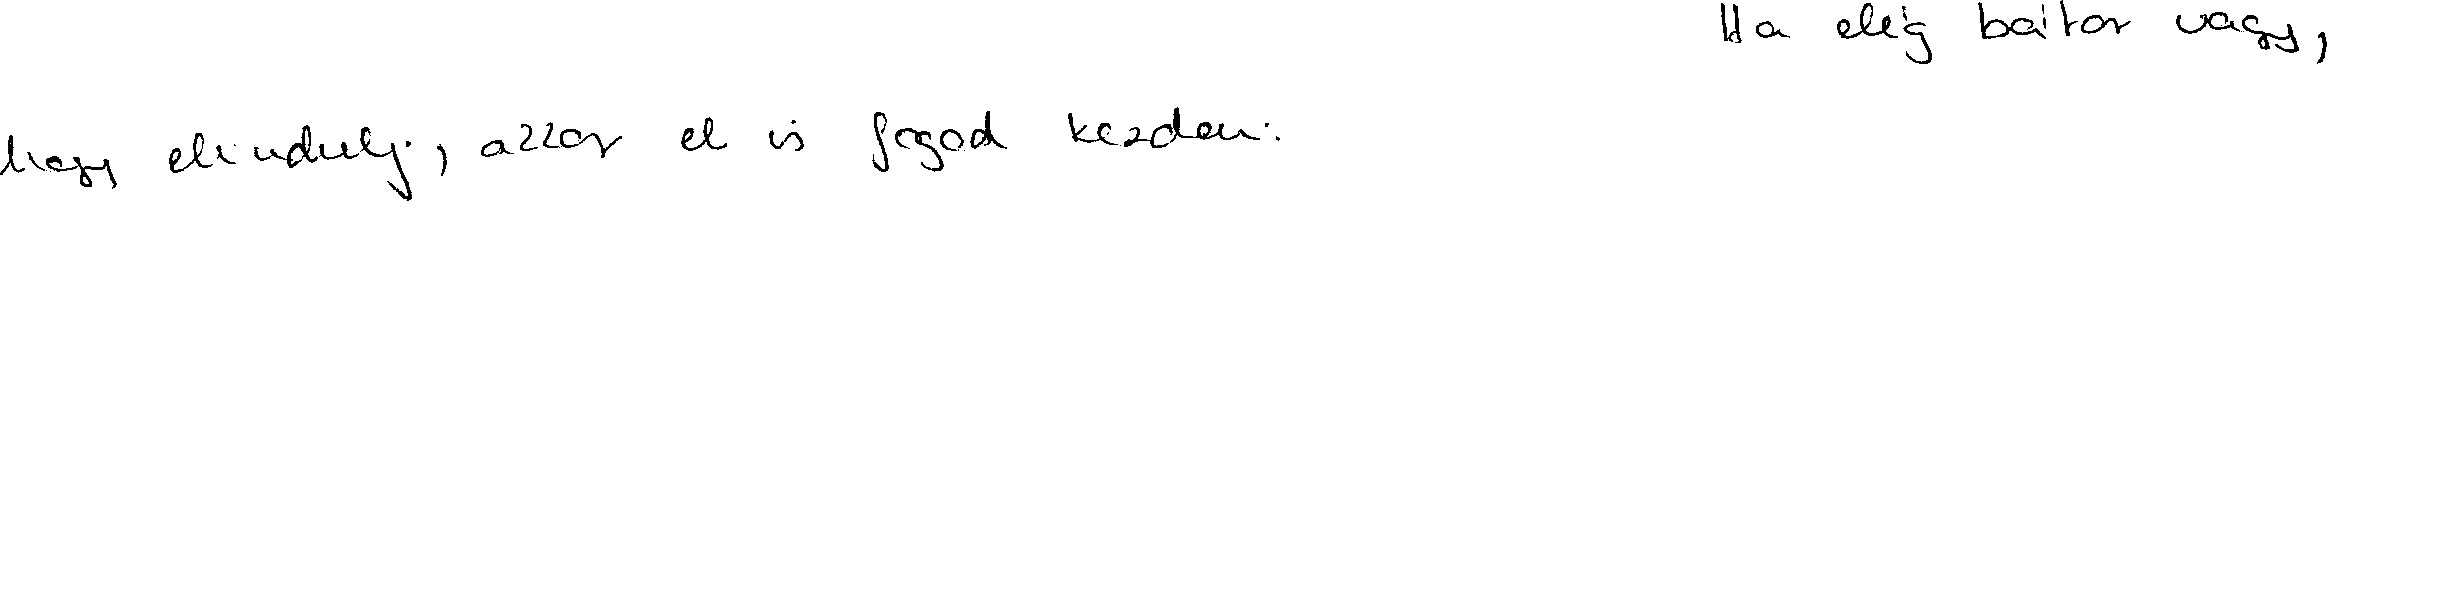 Ha elég bátor vagy,
hogy elindulj, azzor el is fogod kezden.